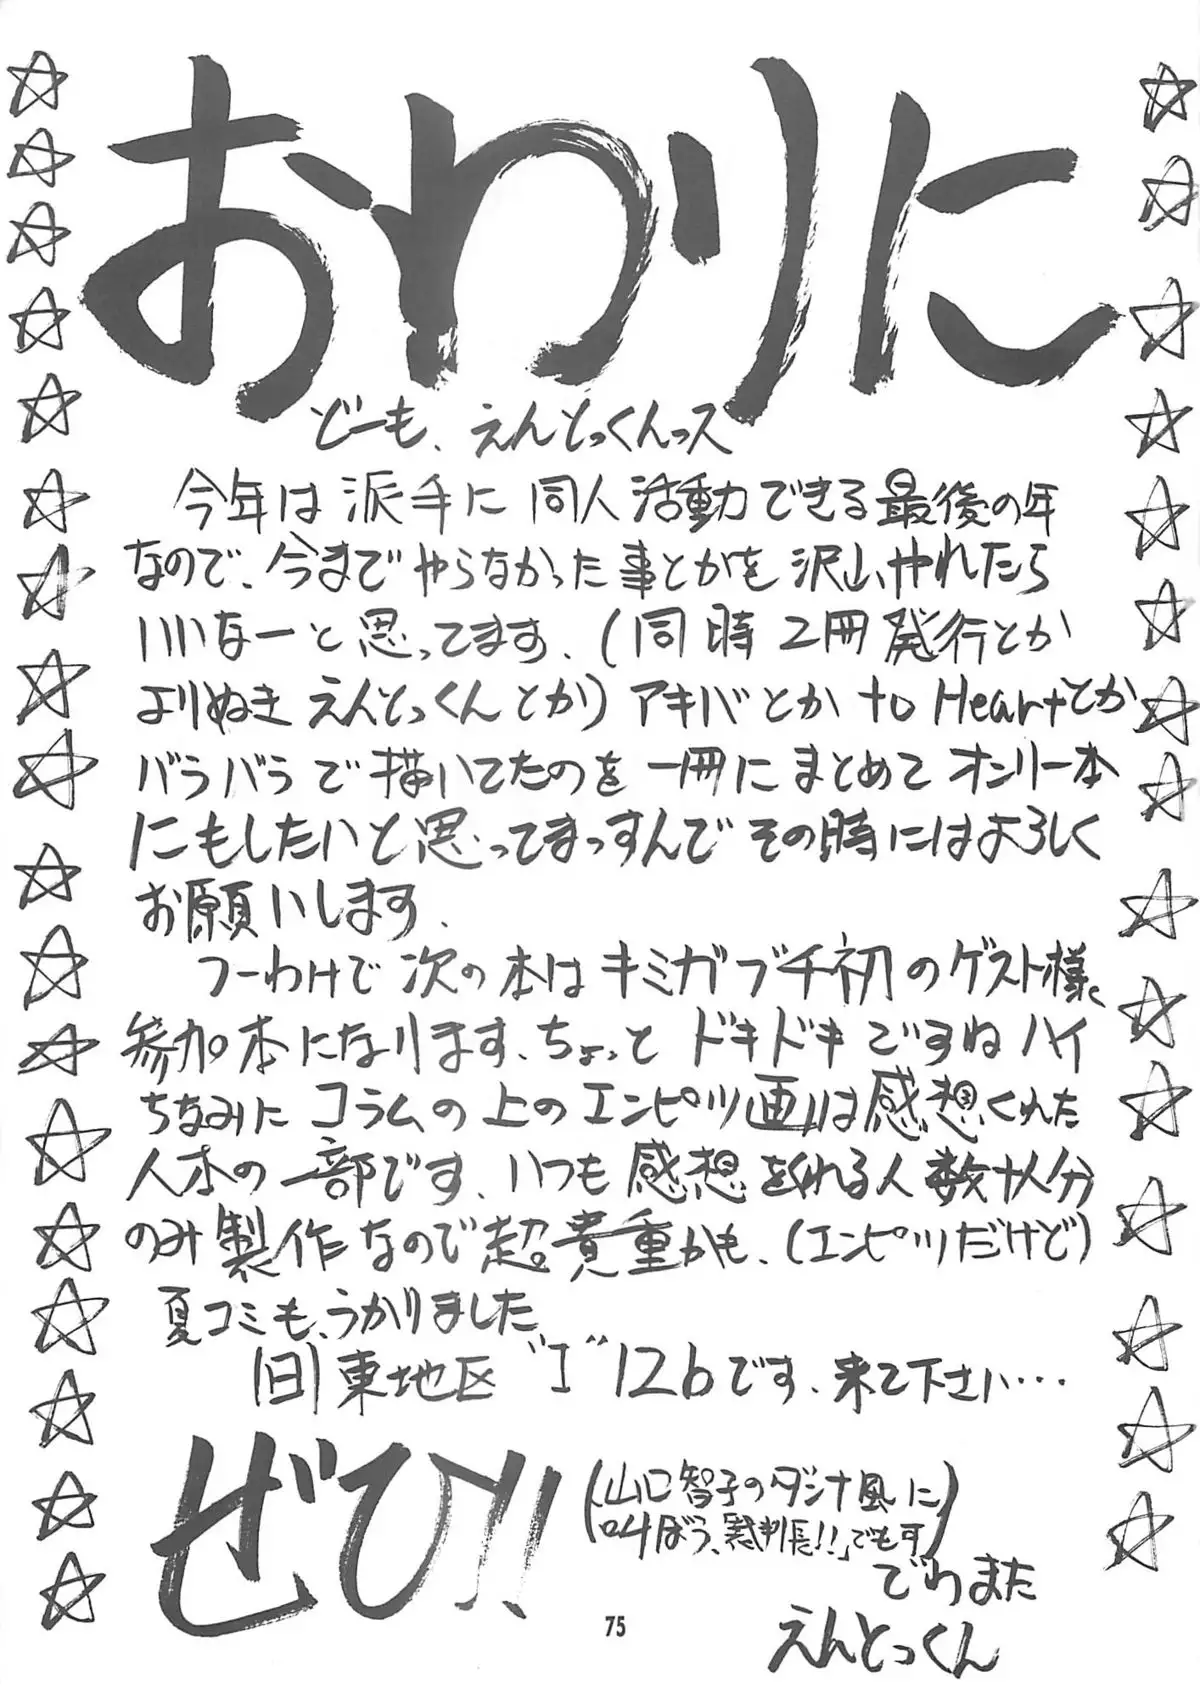 おわりに
どーも、えんとっくんっス
今年は派手に同人活動できる最後の年
なので、今までやらなかった事とかを沢山やれたら
いいなーと思ってます、(同時2冊発行とか
よりぬきえんとっくんとか)アキバとかto Heartとか
バラバラで描いてたのを一冊にまとめてオンリー本
にもしたいと思ってまっすんでその時にはよろしく
お願いします、
つーわけで次の本はキミガブチ初のゲスト様
参加本になります、ちょっとドキドキですねハイ
ちなみにコラムの上のエンピツ画は感想くれた
人本の一部です、いつも感想をくれる人数十人分
のみ製作なので超貴重かも、(エンピツだけど)
夏コミも、うかりました
(日)東地区"I"12bです、来て下さい…
ぜひ!!
(山口智子のダシナ風に
叫ぼう、「裁判長!!」でも可)
でわまた
えんとっくん
75